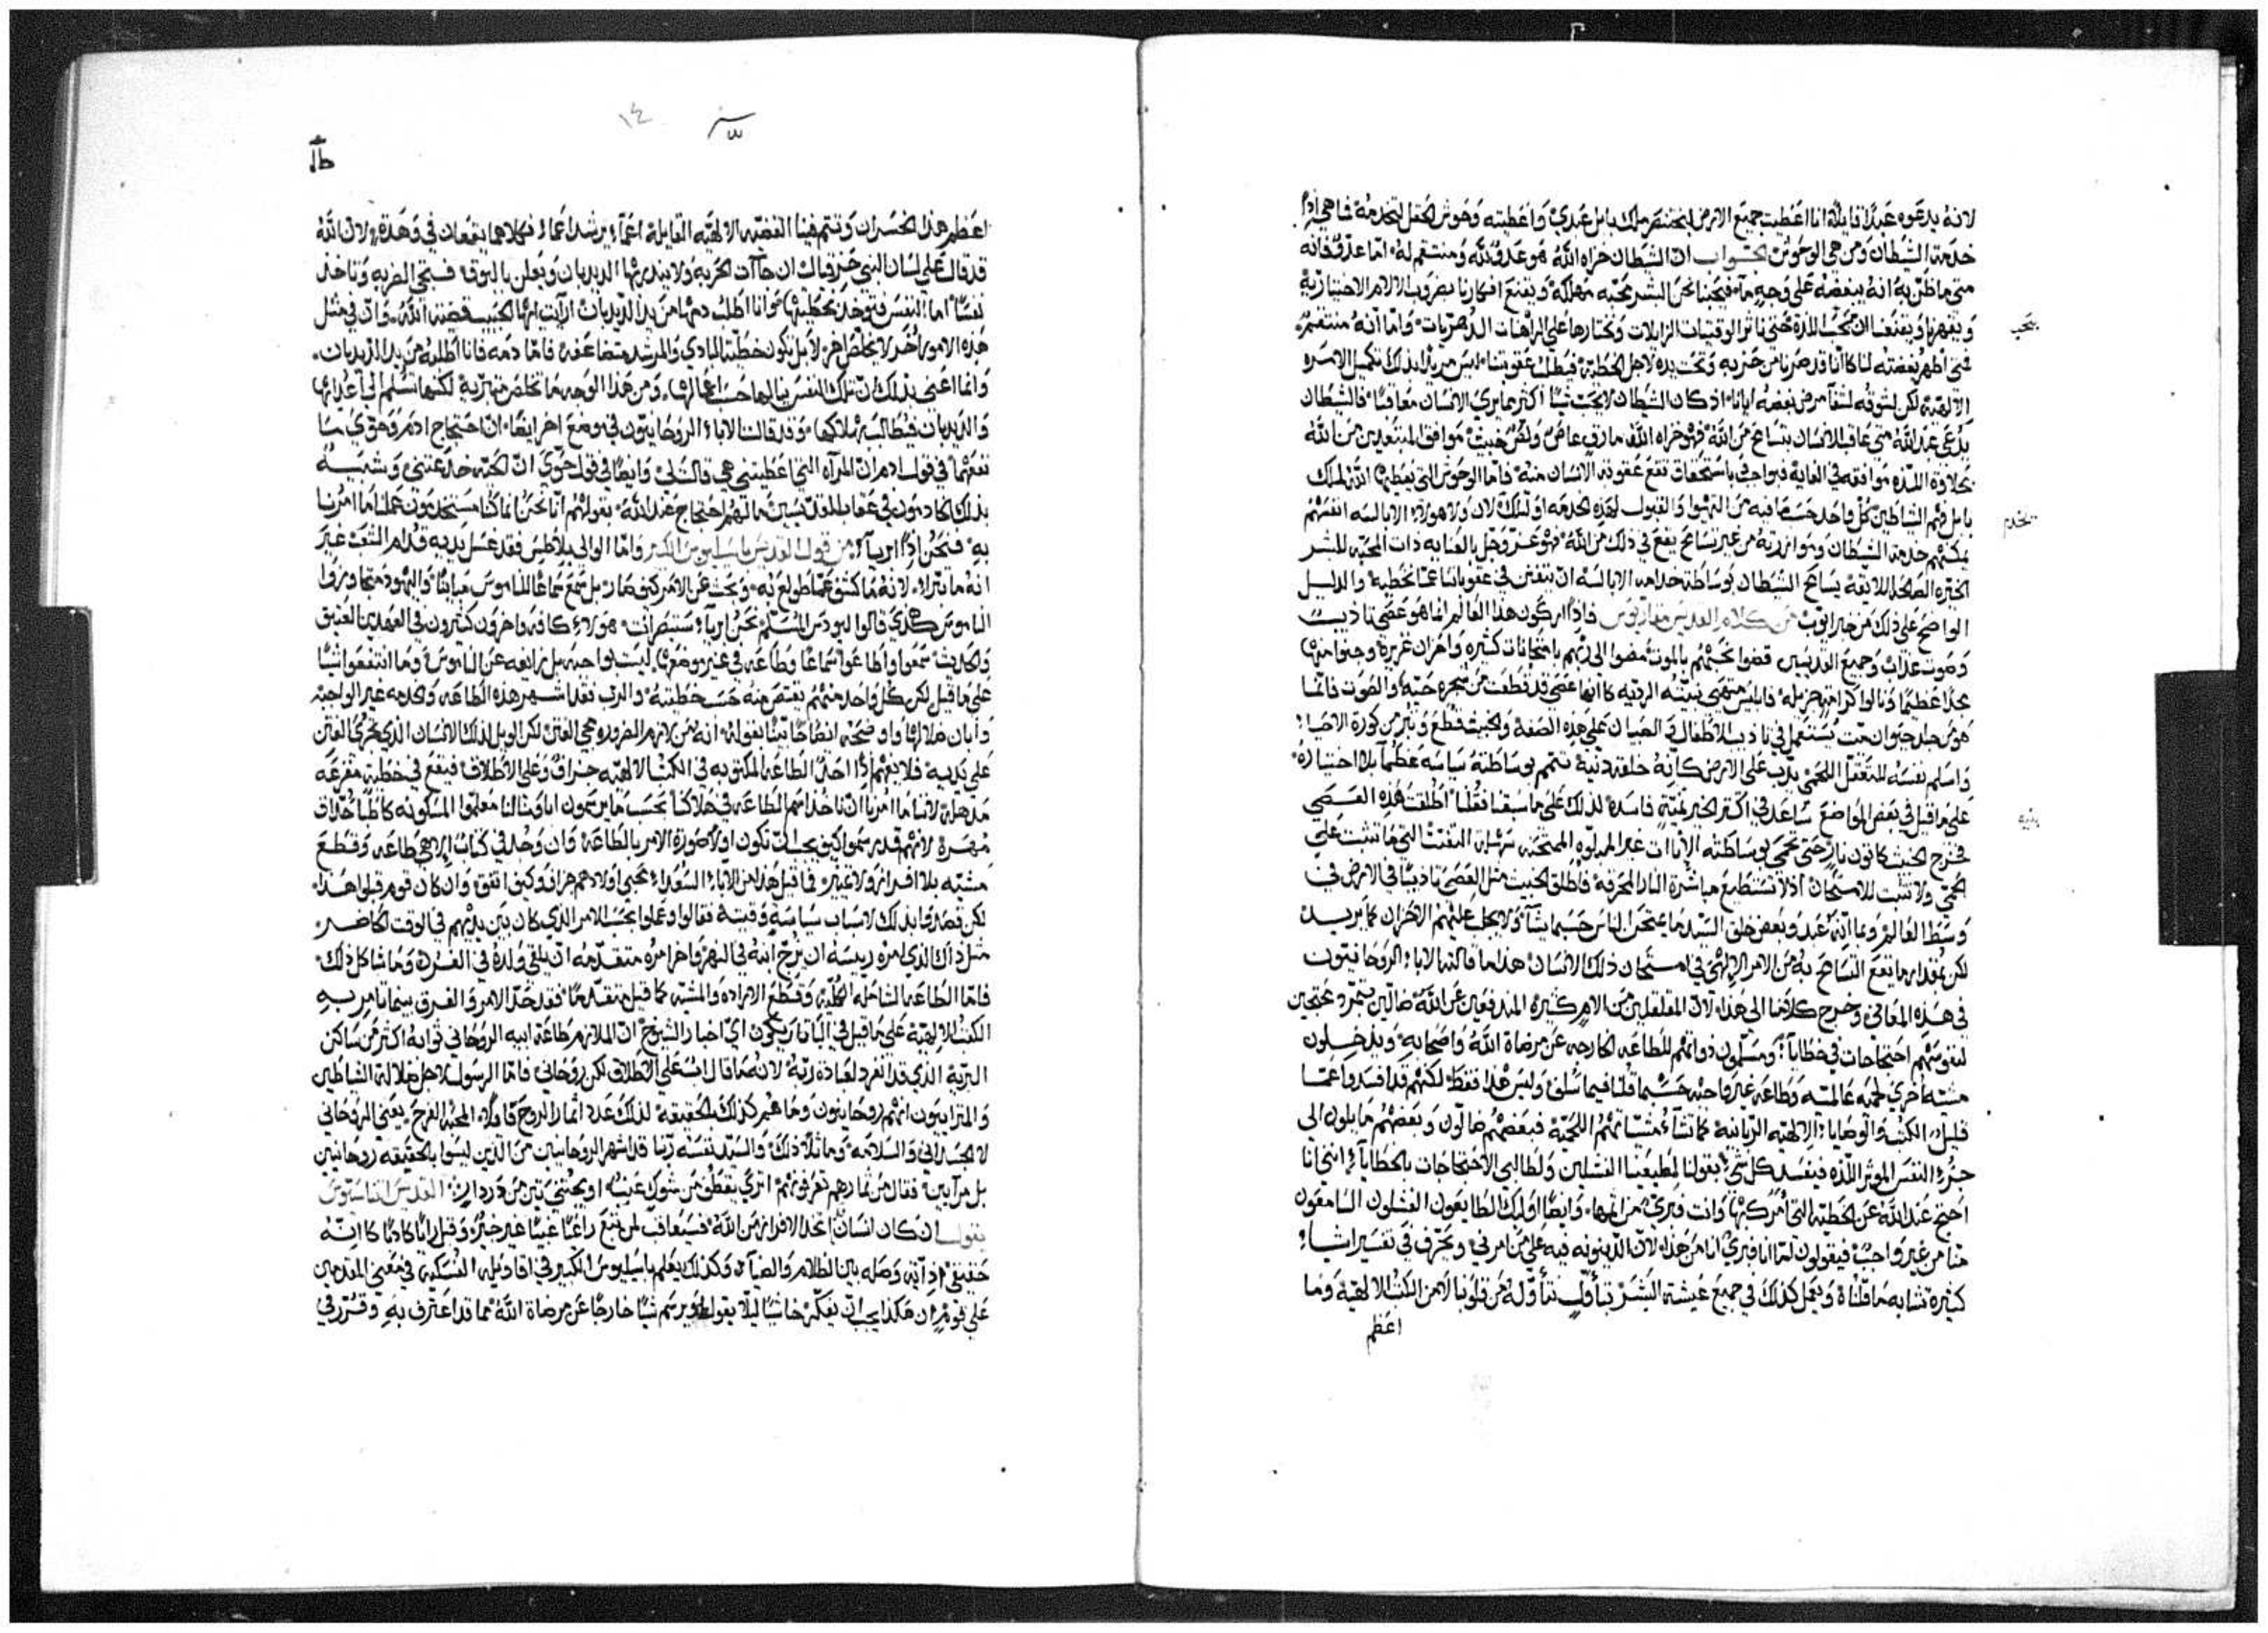 لانه يدعوه عبدًا قايلًا انا اعطيت جميع الارض لبختنصر ملك بابل عبدي واعطيته وحوش الحقل لتخدمه فما هي اذا
خدمة الشيطان ومن هي الوحوش الجواب ان الشيطان خزاه الله هو عدو لله ومنتقم له اما عدو فانه
متى ما ظن به انه يبغضه على وجه ما فيحبنا نحن البشر محبه مهلكة ويقنع افكارنا بضروب الالام الاختيارية
ويقهرنا ويقنعنا ان نحب اللذة حتى ناثر الوقتيات الزايلات ونختارها على الراهنات الدهريات واما انه منتقم
يحب
الالهية لكن لشوقه لشفا مرض بغضه ايانا اذ كان الشيطان لا يحب شيا اكثر مما يرى الانسان معاقبًا فالشيطان
يدعى عبد الله متى عاقب للانسان بتسامح من الله فهو خزاه الله مارق عاص ولص خبيث موافق المبتعدين من الله
بحلاوة اللذه موافقه في الغايه فبواجب باستحقاق تقع عقوبة الانسان منه فاما الوحوش التي يعطيها الله لملك
بابل فهم الشياطين كل واحد حسب ما فيه من التهيوا والقبول لهذه الخدمه
تخدم
يمكنهم خدمة الشيطان وموازرته من غير تسامح يقع في ذلك من الله فهو عز وجل بالعنايه ذات المحبه للبشر
الخيره الصالحه اللايقه يسامح الشيطان بوساطة خدامه الابالسه ان يتفنن في عقوباتنا عما نخطيه والدليل
الواضح على ذلك من خبر ايوب من كلام القديس مقاريوس فاذا اركون هذا العالم انما هو عصى تاديب
وصوت عذاب وجميع القديسين قضوا نحبهم بالموت مضوا الى ربهم بامتحانات كثيره واحزان غزيرة وجنوا منها
مجدًا عظيمًا ونالوا كرامة جزيله فابليس منتهى بنيته الرديه كانها عصى قد قطعت من شجره حيه والصوت فانما
هو من جلد حيوان ميت يستعمل في تاديب الاطفال والصبيان على هذه الصفة والخبيث قطع وبتر من كورة الاحيا
واسلم نفسه للتعقل اللحمي يدب على الارض كانه خليقة دنية تتمم بوساطته سياسه عظما بلا اختياره
على ما قيل في بعض المواضع ساعدني اكثر الخير بنية فاسدة لذلك على ما سبقنا فقلنا اطلقت هذه العصى
بنيه
الحمى ولا تثبت للامتحان اذ لا تستطيع مباشرة النار المحرقة فاطلق الخبيث مثل العصى تاديبًا في الارض في
وسط العالم وبما انه عبد وبعض خلق السيد ما يمتحن الناس حسبما يشا ولا يجلب عليهم الاحزان كما يريد
لكن بمقدار ما يقع التسامح به من الامر الالهي في امتحان ذلك الانسان هذا ما قالته الاباء الروحانيون
في هذه المعاني وخرج كلامنا الى هذا لان المقلقلين من الامر كثيره المندفعين عن الله ضالين بتمرد محتجين
لنفوسهم احتجاجات في خطايا ويسلمون ذواتهم للطاعه الخارجه عن مرضاة الله واصحابه ويدخلون
مشيه اخرى لحميه عالميه وطاعه غير واجبه حسبما قلنا فيما سلف وليس هذا فقط لكنهم قد افسدوا عما
قليل الكتب والوصايا الالهيه الربانيه كما تشاء مشياتهم اللحميه فبعضهم ضالون وبعضهم مايلون الى
جزو النفس الموثر اللذه فيفسد كل شي بقولنا لمطيعينا الفشلين ولطالبي الاحتجاجات بالخطايا انني انا
احتج عند الله عن الخطيه التي امرك بها وانت فبري من المها وايضا اوليك الطايعون الفشلون السامعون
منا من غير واجب فيقولون لنا انا فبري انا من هذا لان الدينونه فيه على من امرني ويحرف في تفسير اشيا
كثيرة تشابه ما قلناه ويعمل كذلك في جميع عيشة البشر بتاول نتاوله من قلوبنا لا من الكتب الالهيه وما
اعظم
١٤
اعظم هذا الخسران وتتم فينا القضيه الالهيه القايلة اعما يرشد اعما فكلاهما يقعان في وهدة لان الله
قد قال على لسان النبي حزقيال ان جات الحربه ولا ينذر بها الديدبان ويعلن بالبوق فتجي الحربه وتاخذ
نفسًا اما النفس فتوخذ بخطيتها وانا اطلب دمها من يد الديدبان ارايت ايها الحبيب قضية الله وان في مثل
هذه الامور اخر لا يخلص اخر لا بل تكون خطية الهادي والمرشد متضاعفه فاما دمه فانا اطلبه من يد الديدبان
وانما اعني بذلك ان تلك النفس ينالها حسب اعمالها ومن هذا الوجه ما تخلص متبرية لكنها تسلم الى اعدايها
والديدبان فيطالب بهلاكها وقد قالت الاباء الروحانيون في موضع اخر ايضا ان احتجاج ادم وحوي ما
نفعهما في قول ادم ان المراه التي اعطيتني هي قالت لي وايضا في قول حوى ان الحيه خدعتني وشبيه
بذلك الخادمون في عقاب القديسين ما لهم احتجاج عند الله بقولهم انا نحن انما كنا مستخدمون عملنا ما امرنا
به فنحن اذا ابريا من قول القديس باسليوس الكبير واما الوالي بيلاطس فقد غسل يديه قدام الشعب غير
انه ما تبرا لانه ما كشف عما طولع به وبحث عن الامر كيف صار بل سمع سماعًا للناموس مباينًا واليهود متجاوزوا
الناموس هكذى قالوا ليودس المسلم نحن ابريا ستنصرانت هولاء كافه واخرون كثيرون في العهدين العتيق
والحديث سمعوا واطاعوا سماعًا وطاعه في غير موضعها ليست بواجبه بل زايغه عن الناموس وما انتفعوا شيًا
على ما قيل لكن كل واحد منهم يقتص منه حسب خطيته والرب فقد اشهر هذه الطاعه والخدمه غير الواجبه
وابان ضلالها واوضحه ايضاحًا بينًا بقوله انه من لازم الضروره تجي العثر لكن الويل لذلك الانسان الذي تجري العثر
على يديه فلا يفهم اذا احد الطاعه المكتوبه في الكتب الالهيه جزاف وعلى الاطلاق فيقع في خطية مفزعه
مذهلة لاننا ما امرنا ان ناخذ اسم الطاعه في هلاكنا بحسب ما يزعمون اباونا لنا معلموا المسكونه كاطبا حذاق
مهرة لانهم قد رسموا كيف يجب ان تكون اولا صورة الامر بالطاعه وان وجد في كتاب الهي طاعه وقطع
مشيه بلا افراز ولا تمييز فما قبل هذا من الاباء السعداء محبي اولادهم جزاف وكيف اتفق وان كان قوم قبلوا هذا
لكن قصدوا بذلك لاسباب سياسية وقتية فقالوا وعملوا بحسب الامر الذي كان بين يديهم في الوقت الحاضر
مثل ذاك الذي امره رييسه ان يزج ابنه في النهر واخر امره متقدمه ان يلقي ولده في الفرن وما شاكل ذلك
فاما الطاعه الشامله الكليه وقطع الاراده والمشيه كما قيل متقدمًا فقد حد الامر والفرق بينما تامر به
الكتب الالهية على ما قيل في الباتاريكون اي اخبار الشيوخ ان الملازم طاعة ابيه الروحاني ثوابه اكثر من ساكن
البرية الذي قد انفرد لعبادة ربه لانه ما قال اب على الاطلاق لكن روحاني فاما الرسول لاجل ضلالة الشياطين
والمترايبون انهم روحانيون وما هم كذلك بالحقيقه لذلك عدد اثمار الروح قايلا المحبه الفرح يعنى الروحاني
لا الجسداني والسلامه وما تلا ذلك والسيد نفسه ربنا قد اشهر الروحانيين من الذين ليسوا بالحقيقه روحانيين
بل مرايين فقال من ثمارهم تعرفونهم اترى يقطف من شوك عنب او يجتنى تين من دردار القديس اغناسيوس
يقول ان كان انسان اتخذ الافراز من الله فسيعاقب
حقيقي اذ ايه وصله بين الظلام والضيا وكذلك يعلم باسيليوس الكبير في اقاويله النسكية في معنى المقدمين
على قوم ان هكذا يجب ان يفكر خاشيًا ليلا يقول او يرسم شيًا خارجًا عن مرضاة الله مما قد اعترف به وتقرر في